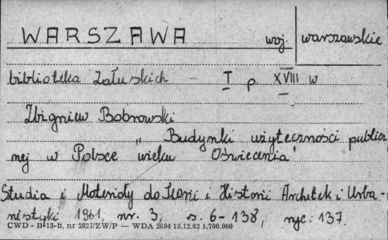 WARSZAWA woj. warszawskie
biblioteka Załuskich - I p XVIII w
Zbigniew Bobrowski
„Budynki użyteczności publicz
nej w Polsce wieku Oświecenia"
Studia i Materiały do Teorii i Historii Architek i Urba-
nistyki 1961, nr. 3, s. 6-138, ryc. 137.
CWD - B-13-B, nr 2827/ZW/P — WDA 2694 13.12.62 1.700.000